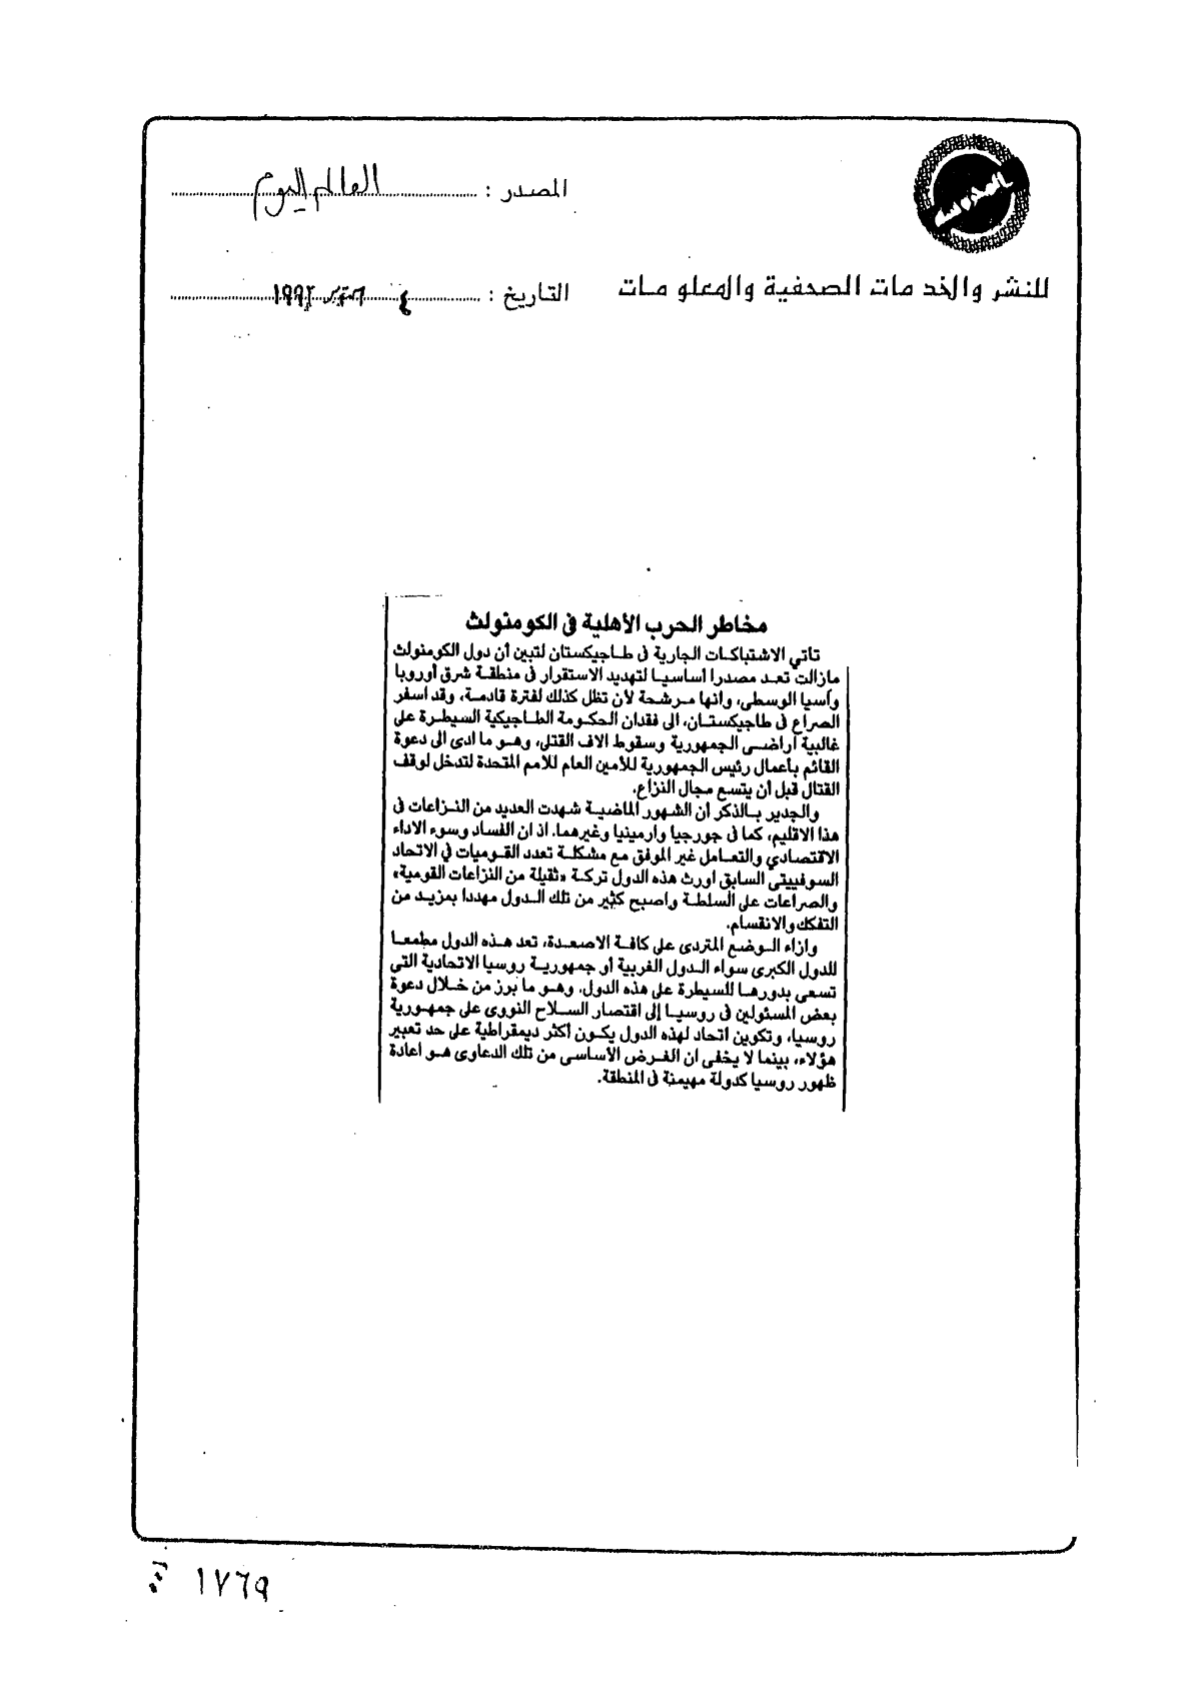 المصدر : العالم اليوم
للنشر والخدمات الصحفية والمعلومات
التاريخ : ٤ ١٩٩٢
مخاطر الحرب الأهلية فى الكومنولث
تأتي الاشتباكات الجارية فى طاجيكستان لتبين أن دول الكومنولث
مازالت تعد مصدرا اساسيا لتهديد الاستقرار فى منطقة شرق أوروبا
وآسيا الوسطى، وانها مرشحة لأن تظل كذلك لفترة قادمة، وقد اسفر
الصراع فى طاجيكستان، الى فقدان الحكومة الطاجيكية السيطرة على
غالبية اراضى الجمهورية وسقوط الاف القتلى، وهو ما ادى الى دعوة
القائم بأعمال رئيس الجمهورية للأمين العام للامم المتحدة لتدخل لوقف
القتال قبل أن يتسع مجال النزاع.
والجدير بالذكر أن الشهور الماضية شهدت العديد من النزاعات فى
هذا الاقليم، كما فى جورجيا وارمينيا وغيرهما. اذ ان الفساد وسوء الاداء
الاقتصادي والتعامل غير الموفق مع مشكلة تعدد القوميات في الاتحاد
السوفييتى السابق اورث هذه الدول تركة «ثقيلة من النزاعات القومية»
والصراعات على السلطة واصبح كثير من تلك الدول مهددا بمزيد من
التفكك والانقسام.
وازاء الوضع المتردى على كافة الاصعدة، تعد هذه الدول مطمعا
للدول الكبرى سواء الدول الغربية أو جمهورية روسيا الاتحادية التى
تسعى بدورها للسيطرة على هذه الدول. وهو ما برز من خلال دعوة
بعض المسئولين فى روسيا إلى اقتصار السلاح النووى على جمهورية
روسيا، وتكوين اتحاد لهذه الدول يكون أكثر ديمقراطية على حد تعبير
هؤلاء، بينما لا يخفى ان الغرض الأساسى من تلك الدعاوى هو اعادة
ظهور روسيا كدولة مهيمنة فى المنطقة.
١٧٦٩